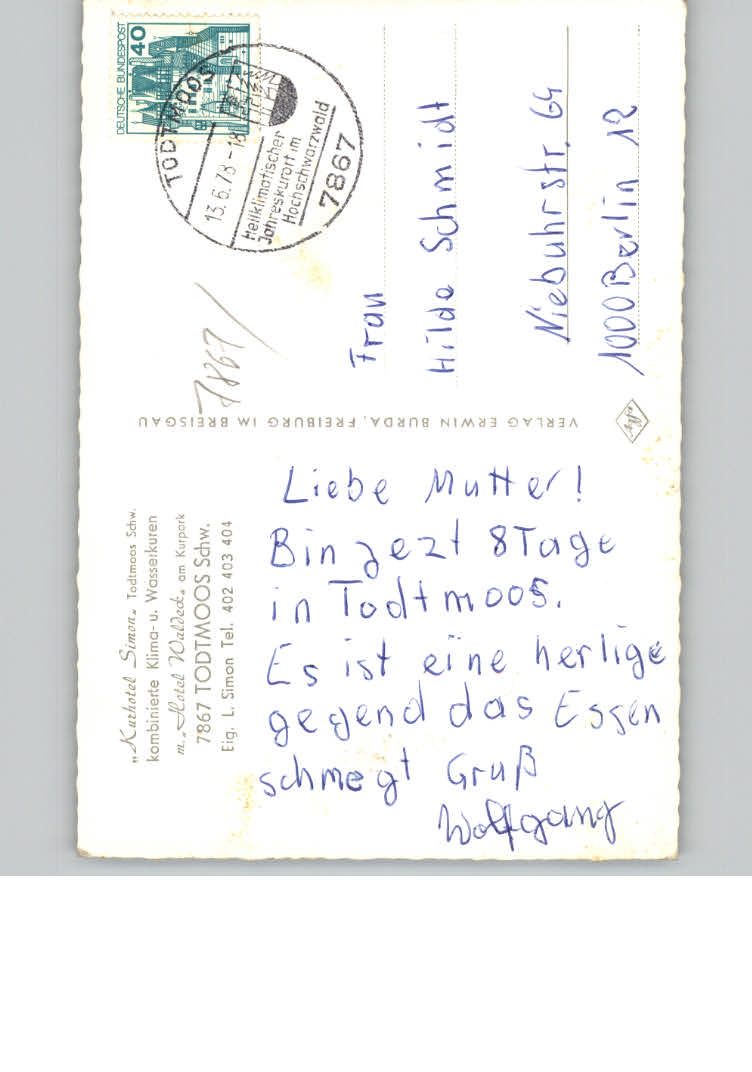 „Kurhotel Simon„ Todtmoos Schw.
kombinierte Klima- u. Wasserkuren
m. „Hotel Waldeck„ am Kurpark
7867 TODTMOOS Schw.
Eig. L. Simon Tel. 402 403 404
Liebe Mutter!
Bin jezt 8 Tage
in Todtmoos.
Es ist eine herlige
gegend das Essen
schmegt Gruß
Wolfgang
VERLAG ERWIN BURDA, FREIBURG IM BREISGAU
7867
DEUTSCHE BUNDESPOST
40
TODTMOOS
13.6.78-18
Heilklimatischer
Jahreskurort im
Hochschwarzwald
7867
Frau
Hilde Schmidt
Niebuhrstr. 64
1000 Berlin 12